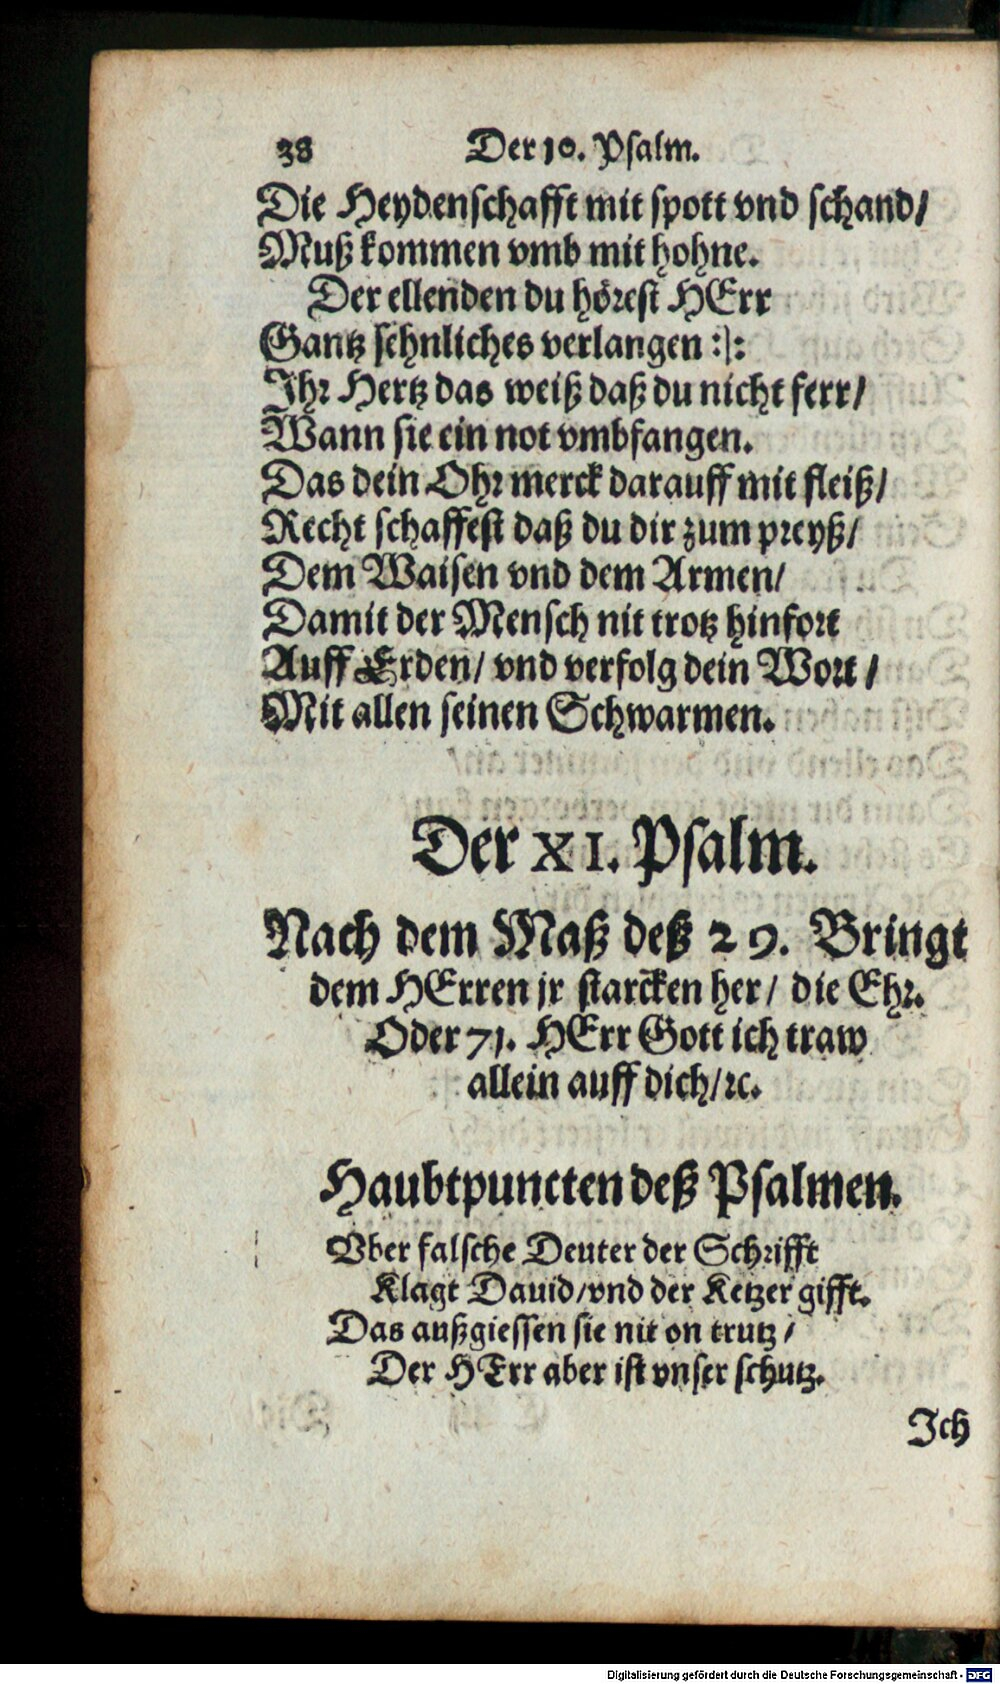 38 Der 10. Psalm.
Die Heydenschafft mit spott vnd schand/
Muß kommen vmb mit hohne.
Der ellenden du hörest HErr
Gantz sehnliches verlangen :|:
Ihr Hertz das weiß daß du nicht ferr/
Wann sie ein not vmbfangen.
Das dein Ohr merck darauff mit fleiß/
Recht schaffest daß du dir zum preyß/
Dem Waisen vnd dem Armen/
Damit der Mensch nit trotz hinfort
Auff Erden/ vnd verfolg dein Wort/
Mit allen seinen Schwarmen.
Der XI. Psalm.
Nach dem Maß deß 29. Bringt
dem HErren jr starcken her/ die Ehr.
Oder 71. HErr Gott ich traw
allein auff dich/ꝛc.
Haubtpuncten deß Psalmen.
Vber falsche Deuter der Schrifft
Klagt Dauid/vnd der Ketzer gifft.
Das außgiessen sie nit on trutz/
Der HErr aber ist vnser schutz.
Ich
Digitalisierung gefördert durch die Deutsche Forschungsgemeinschaft - DFG